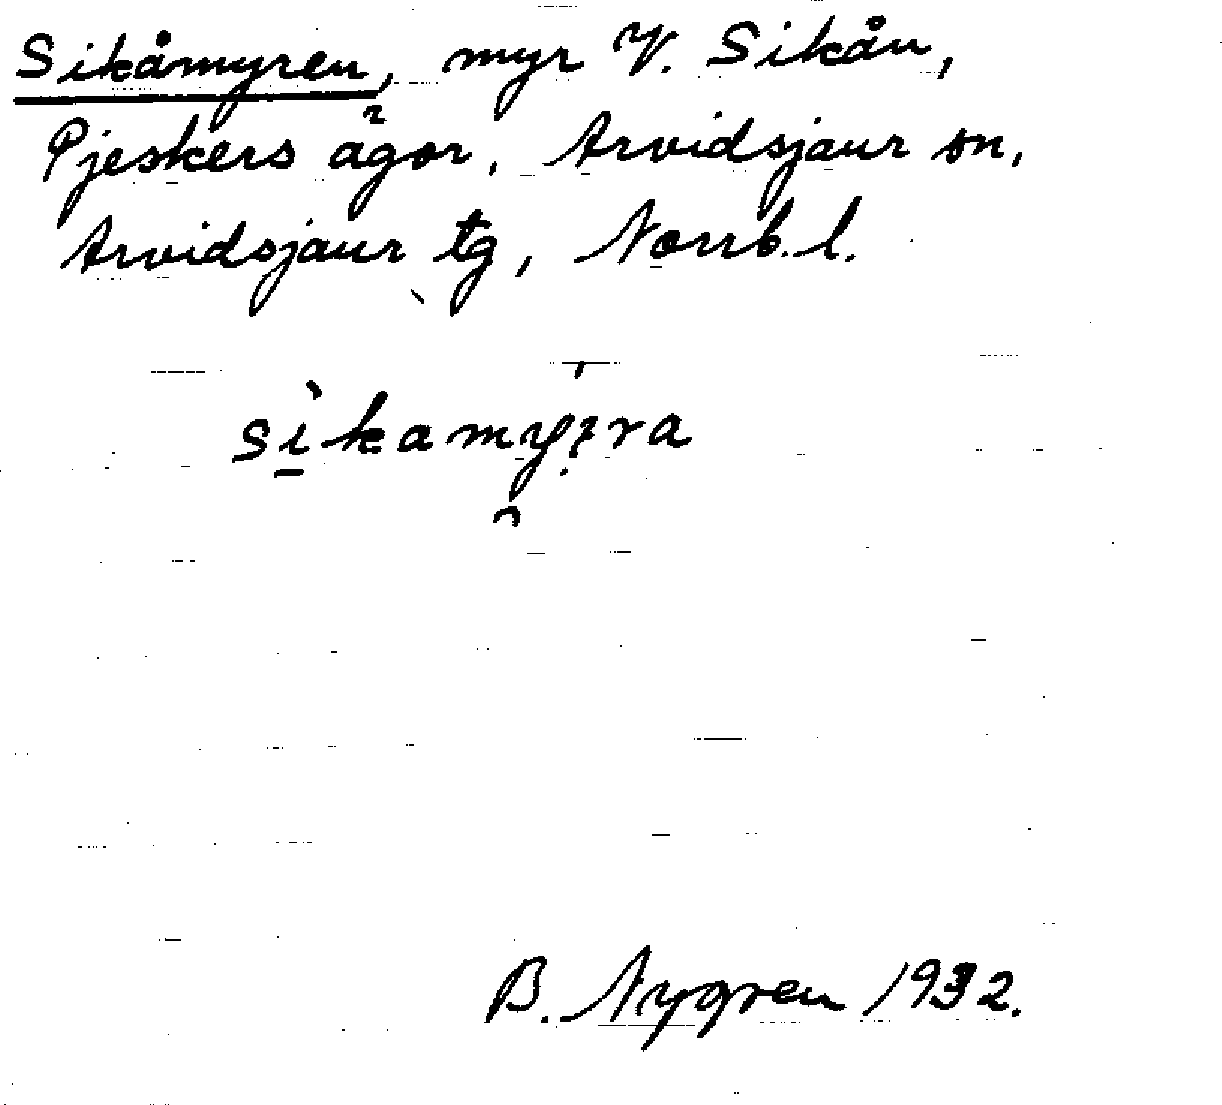 Sikåmyren, myr V. Sikån,
Pjeskers ägor, Arvidsjaur sn,
Arvidsjaur tg, Norrb. l.
B. Nygren 1932.